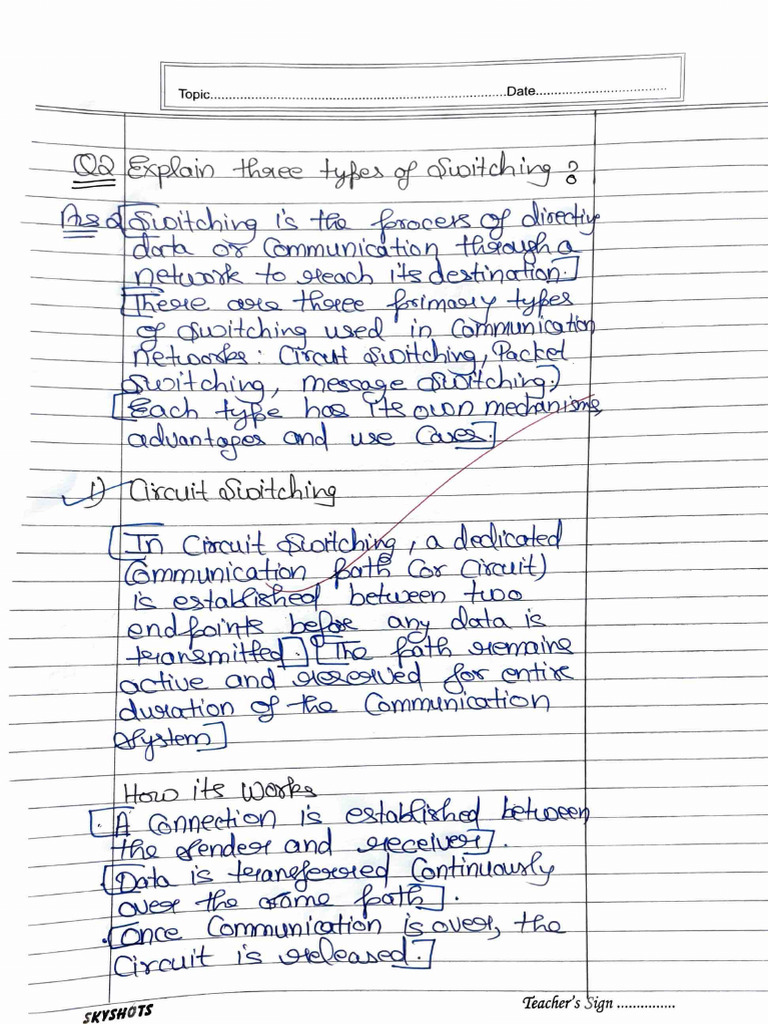 Topic.......................................................................Date..................................
Q2 Explain three types of Switching ?
Ans 2 Switching is the process of directing
data or Communication through a
network to reach its destination.
There are three primary types
of switching used in Communication
networks: Circuit Switching, Packet
Switching, message Switching.
Each type has its own mechanisms,
advantages and use Cases.
1) Circuit Switching
In Circuit Switching, a dedicated
Communication path (or Circuit)
is established between two
endpoints before any data is
transmitted. The path remains
active and reserved for entire
duration of the Communication
System
How its Works
. A Connection is established between
the sender and receiver.
Data is transferred Continuously
over the same path.
. Once Communication is over, the
Circuit is released.
SKYSHOTS
Teacher's Sign ...............